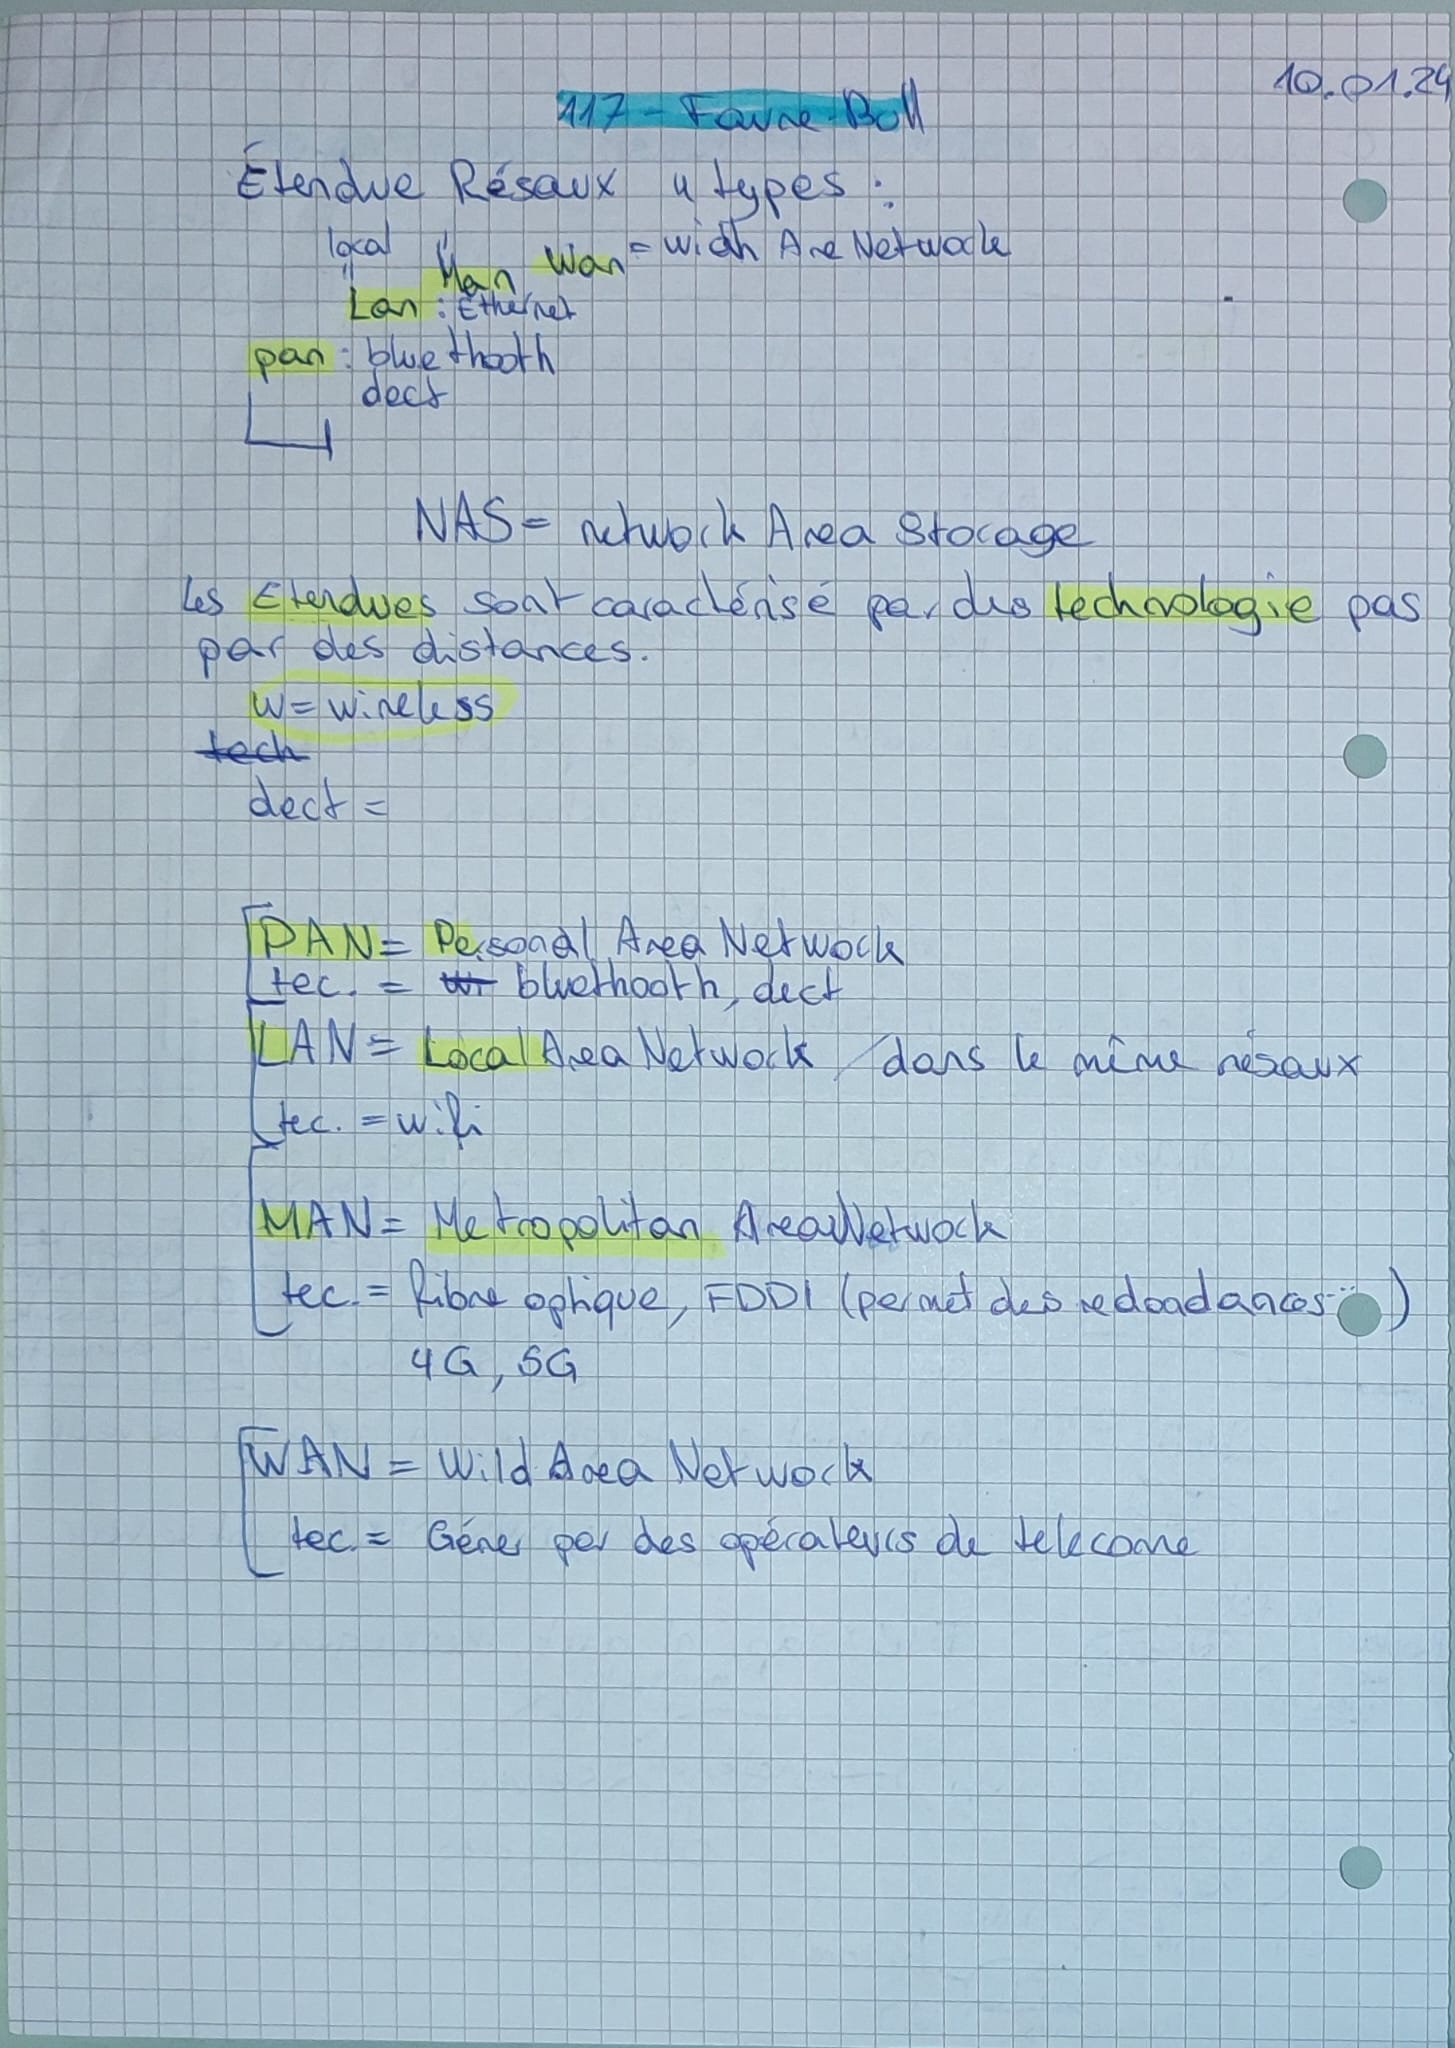 10.01.24
117 - Favre-Bull
Étendue Résaux 4 types :
local
"
Man Wan = Widh Are Network
Lan : Ethernet
pan : bluethooth
dect
NAS = network Area Storage
les Etendues sont caractérisé par des technologie pas
par des distances.
W = wireless
tech
dect =
PAN = Personal Area Network
tec. = bluethooth, dect
LAN = Local Area Network / dans le même résaux
tec. = wifi
MAN = Metropolitan Area Network
tec. = fibre optique, FDDI (permet des redondances... )
4G, 5G
WAN = Wild Area Network
tec. = Gérer par des opérateurs de telecome